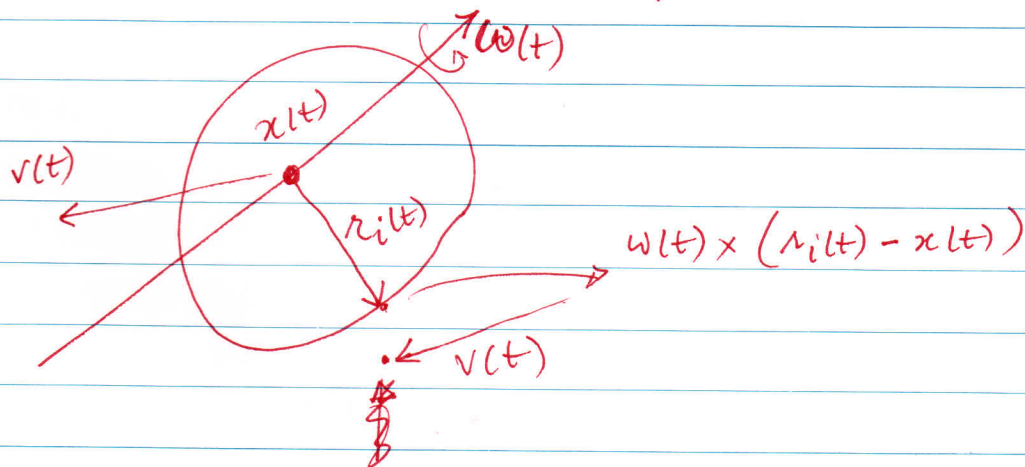 ω(t)
x(t)
v(t)
r_i(t)
ω(t) × (r_i(t) - x(t))
v(t)